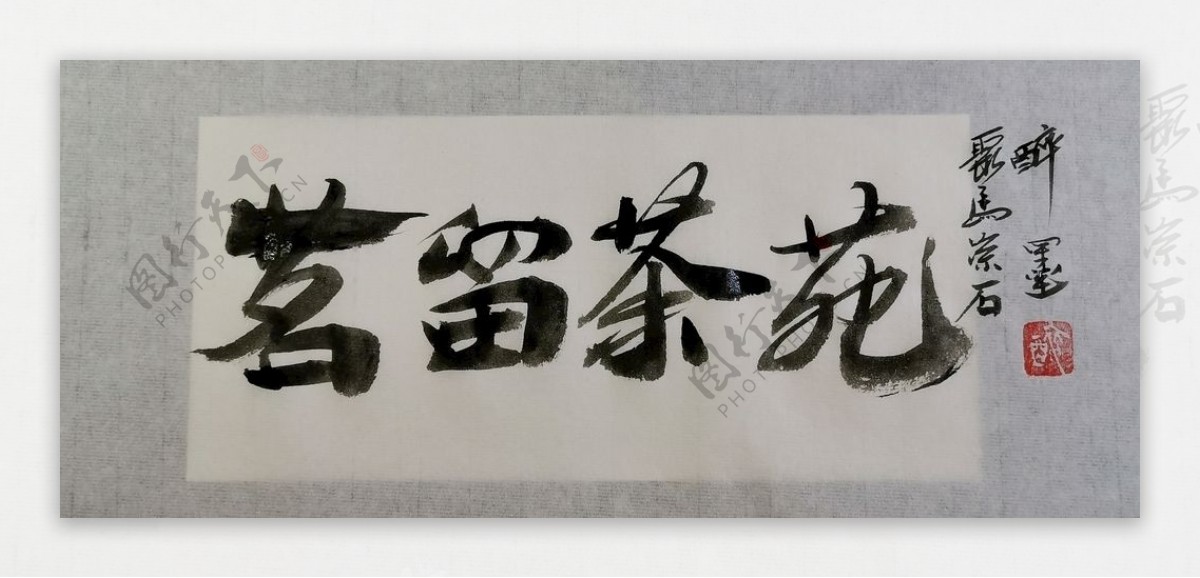 茗留茶苑
醉墨
聚马崇石
图行天下
PHOTOPHOTO.CN
图行天下
PHOTOPHOTO.CN
聚马崇石